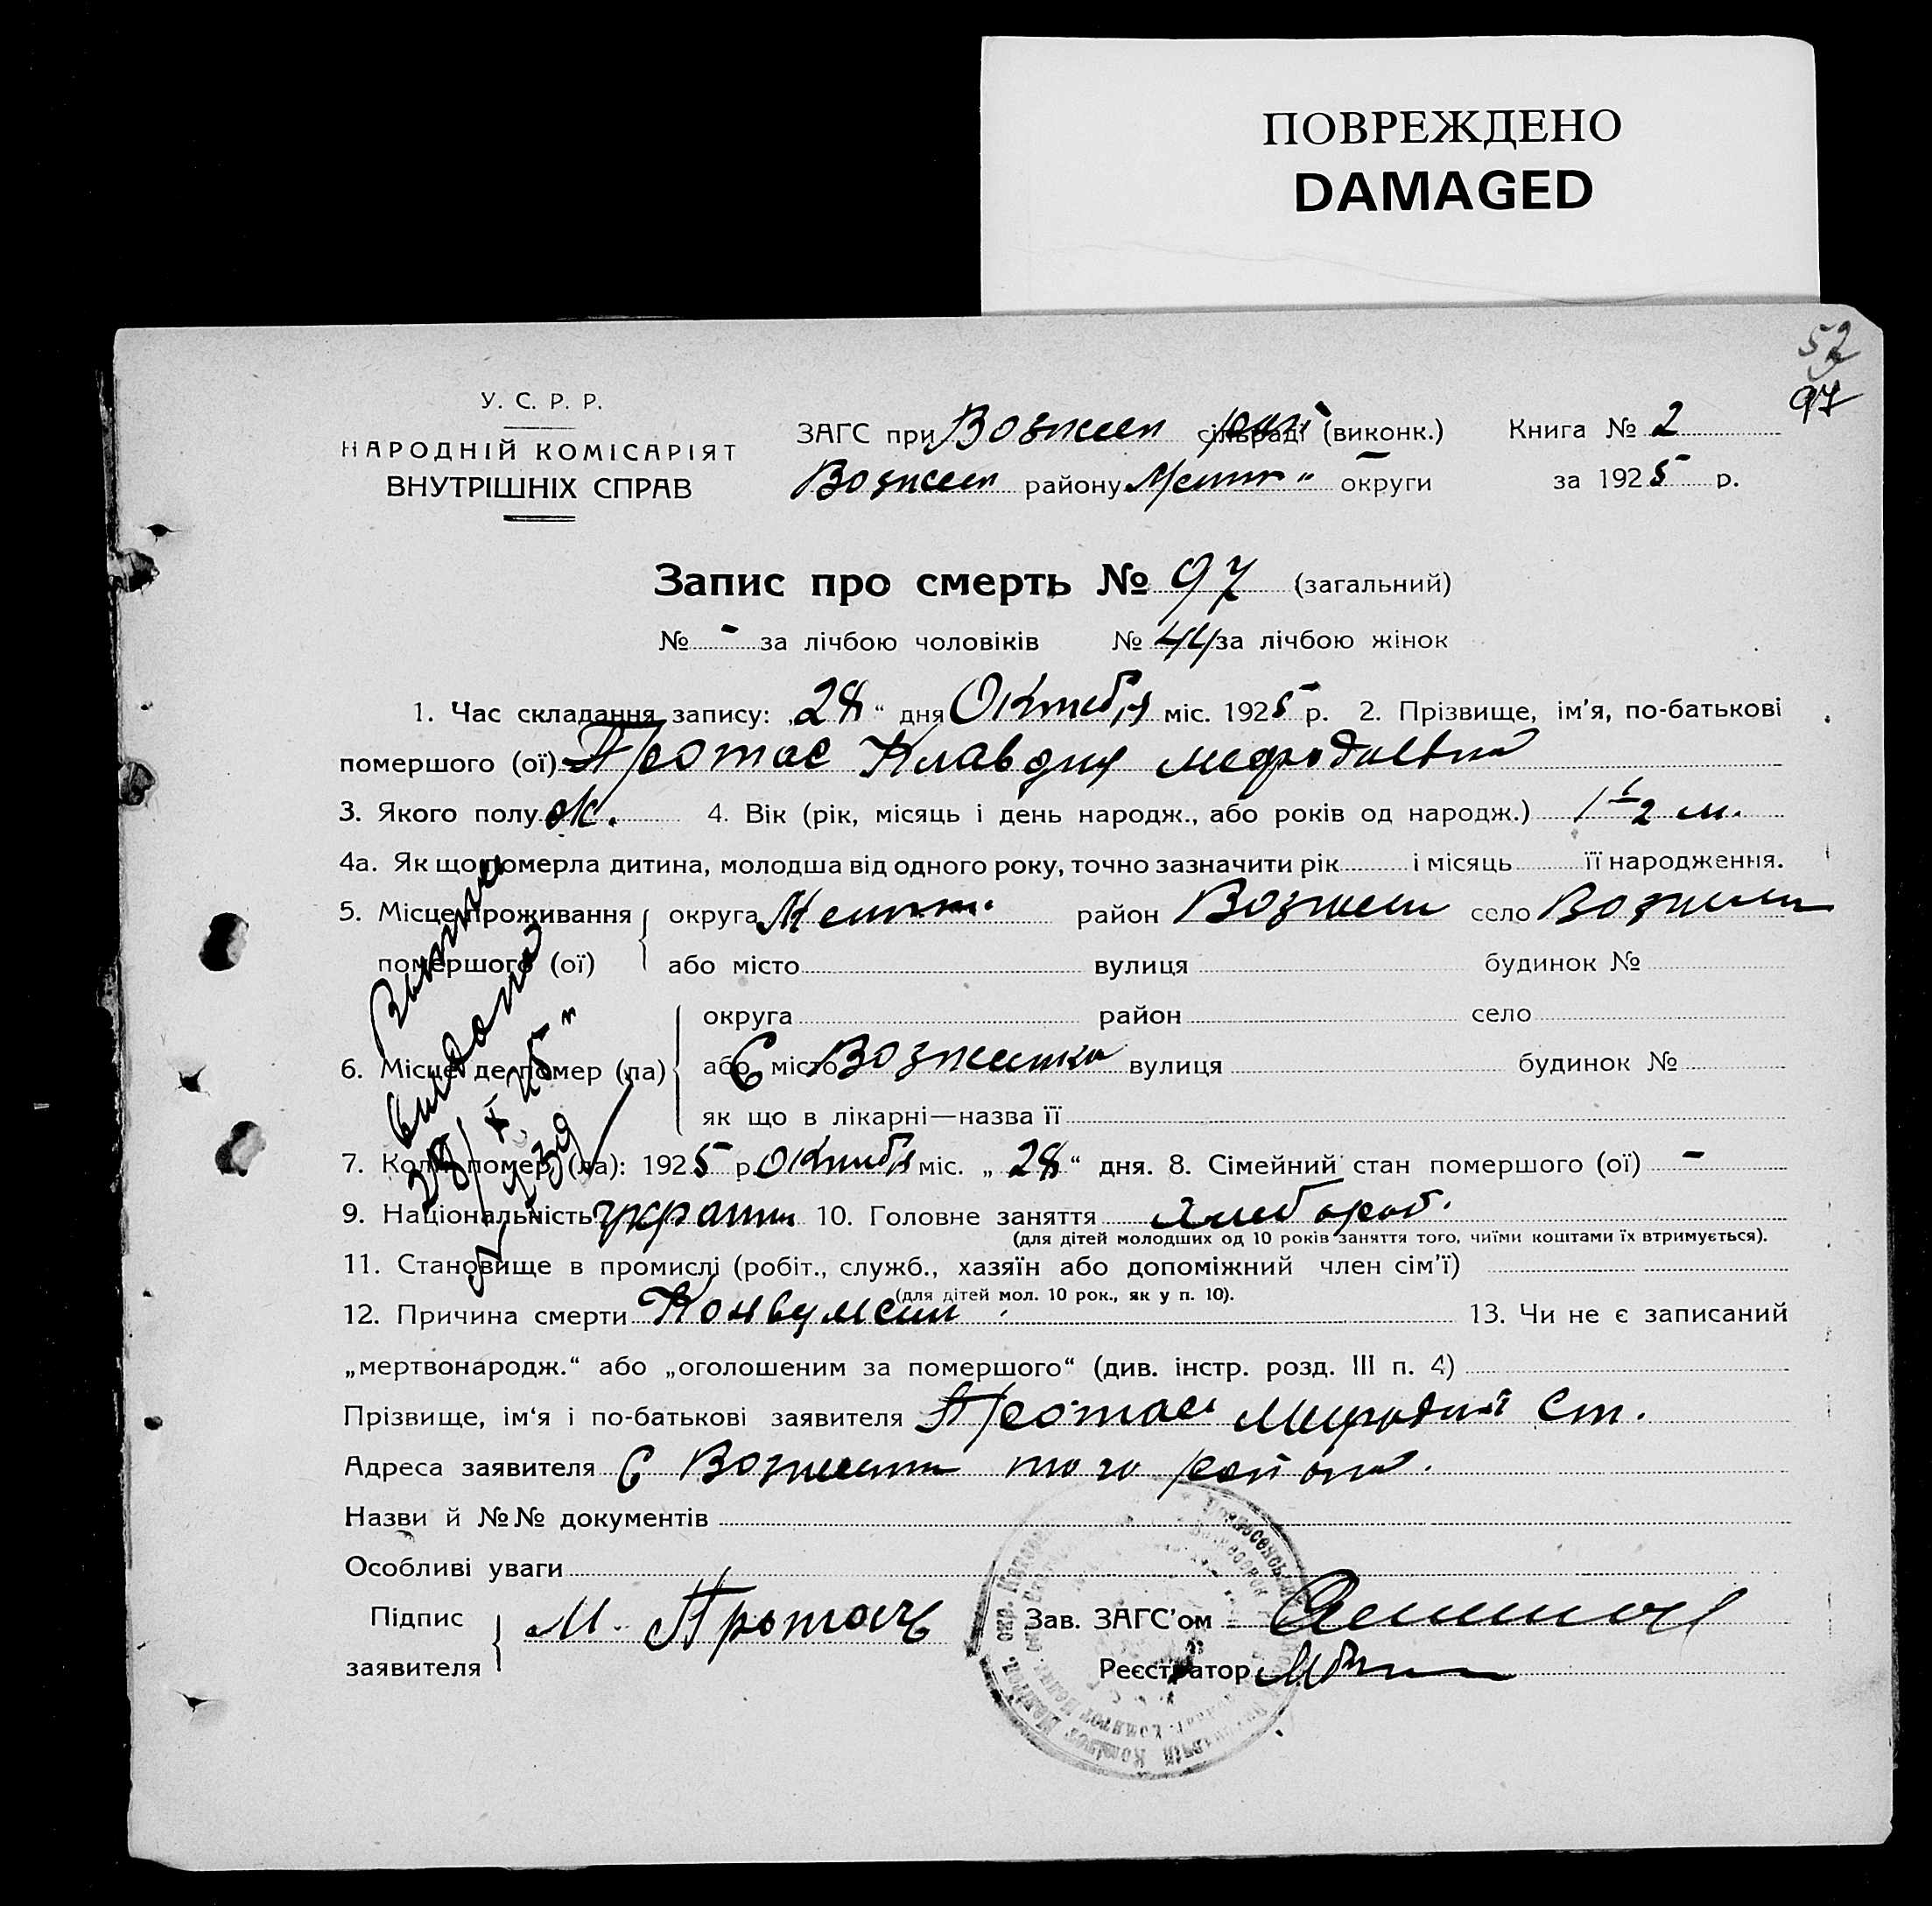 ПОВРЕЖДЕНО
DAMAGED
52
97
У. С. Р. Р.
НАРОДНІЙ КОМІСАРІЯТ
ВНУТРІШНІХ СПРАВ
ЗАГС при Вознесен рай сільраді (виконк.) Книга № 2
Вознесен району Меліт " округи за 1925 р.
Запис про смерть № 97 (загальний)
№ - за лічбою чоловіків № 44 за лічбою жінок
1. Час складання запису: „28“ дня Октября міс. 1925 р. 2. Прізвище, ім'я, по-батькові
помершого (ої) Протас Клавдия Мефодиевна
3. Якого полу ж. 4. Вік (рік, місяць і день народж., або років од народж.) 1 1/2 м.
4а. Як що померла дитина, молодша від одного року, точно зазначити рік і місяць її народження.
5. Місце проживання помершого (ої) округа Мелит. район Вознесен село Вознесен
або місто вулиця будинок №
6. Місце де помер (ла) округа район село
або місто С Вознесенка вулиця будинок №
як що в лікарні—назва її
7. Коли помер (ла): 1925 р. Октября міс. „28“ дня. 8. Сімейний стан помершого (ої) -
9. Національність украин 10. Головне заняття хлебороб.
(для дітей молодших од 10 років заняття того, чиїми коштами їх втримується).
11. Становище в промислі (робіт., служб., хазяїн або допоміжний член сім'ї)
(для дітей мол. 10 рок., як у п. 10).
12. Причина смерти 13. Чи не є записаний
„мертвонародж.“ або „оголошеним за помершого“ (див. інстр. розд. III п. 4)
Прізвище, ім'я і по-батькові заявителя Протас Мефодий Ст.
Адреса заявителя С Вознесенка того района.
Назви й №№ документів
Особливі уваги
Підпис заявителя М. Протас Зав. ЗАГС'ом
Реєстратор
выдана
28/X 25"